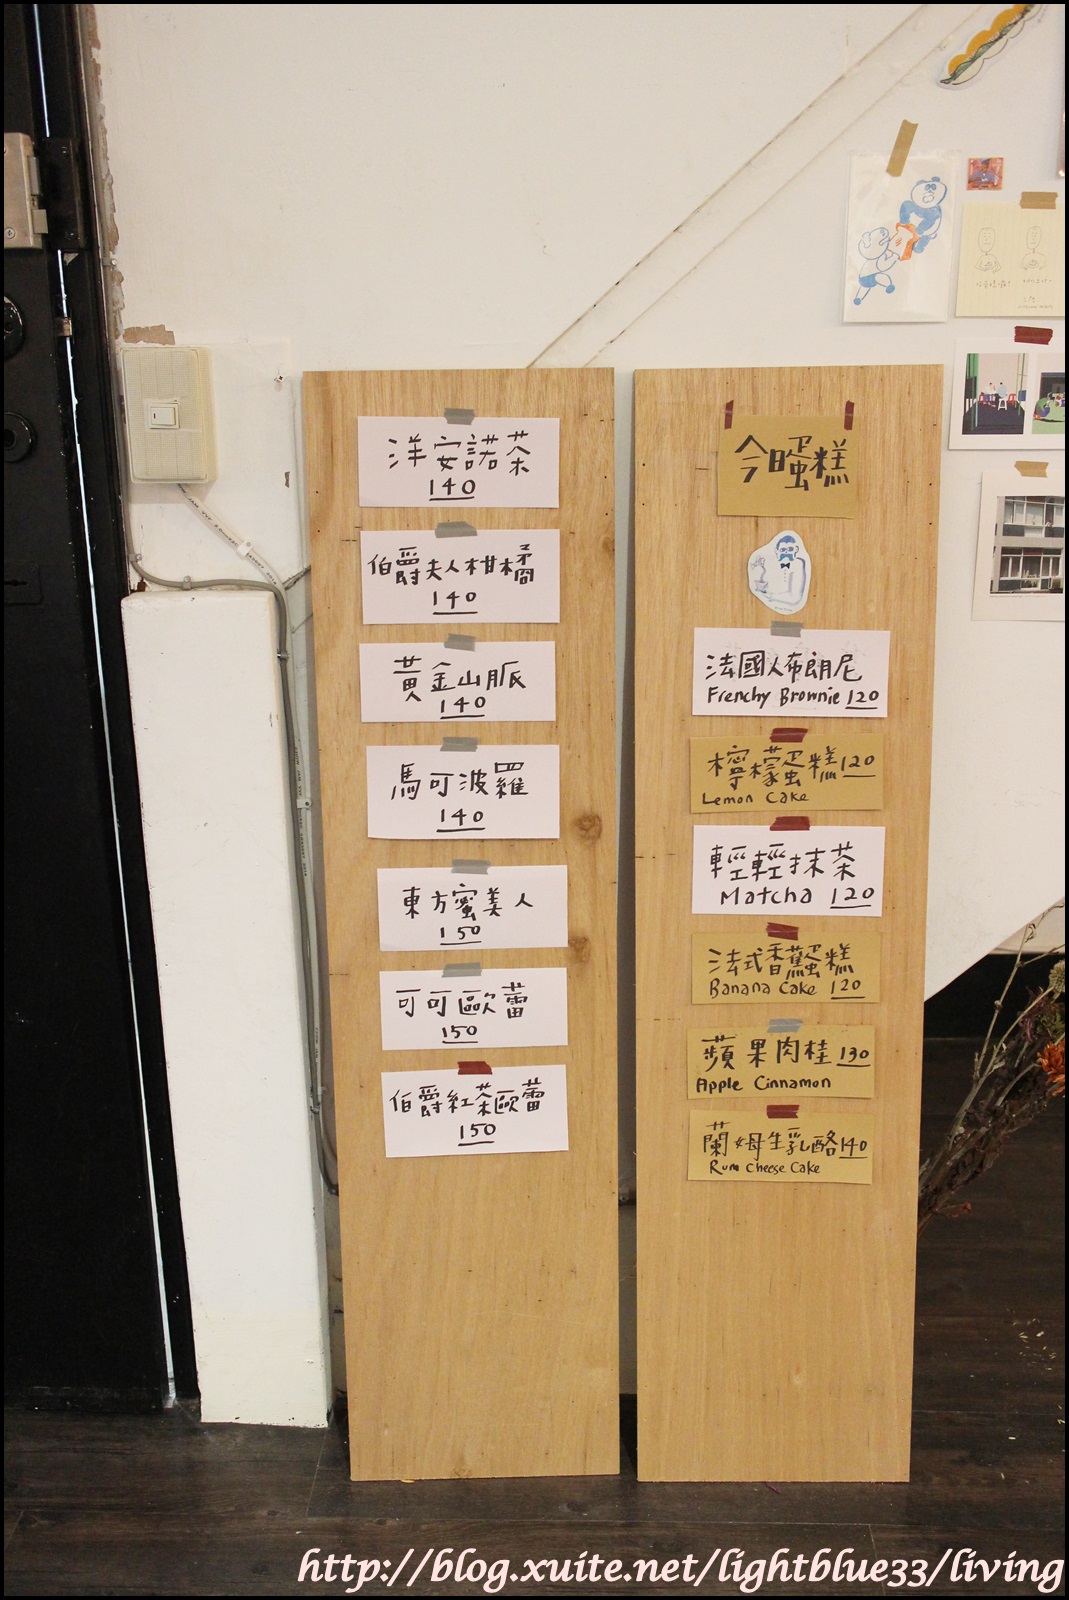 洋安諾茶
140
伯爵夫人柑橘
140
黃金山脈
140
馬可波羅
140
東方蜜美人
150
可可歐蕾
150
伯爵紅茶歐蕾
150
今日蛋糕
法國人布朗尼
Frenchy Brownie 120
檸檬蛋糕 120
Lemon Cake
輕輕抹茶
Matcha 120
法式香蕉蛋糕
Banana Cake 120
蘋果肉桂 130
Apple Cinnamon
蘭姆生乳酪 140
Rum Cheese Cake
http://blog.xuite.net/lightblue33/living